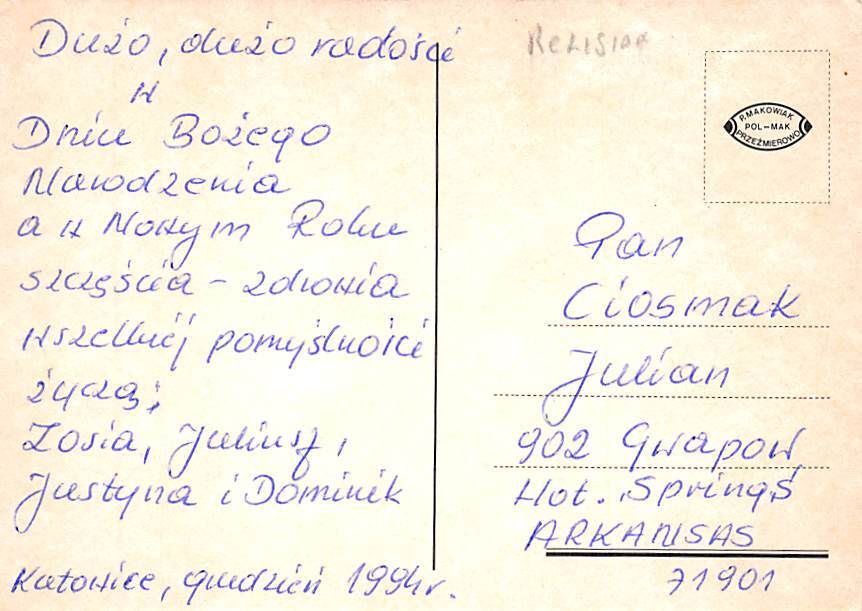 Dużo, dużo radości
w
Dniu Bożego
Narodzenia
a w Nowym Roku
szczęścia - zdrowia
wszelkiej pomyślności
życzą;
Zosia, Juliusz,
Justyna i Dominik
Katowice, grudzień 1994r.
RELIGIJA
P. MAKOWIAK
POL-MAK
PRZEŹMIEROWO
Pan
Ciosmak
Julian
902 Gwapow
Hot. Springś
ARKANSAS
71901